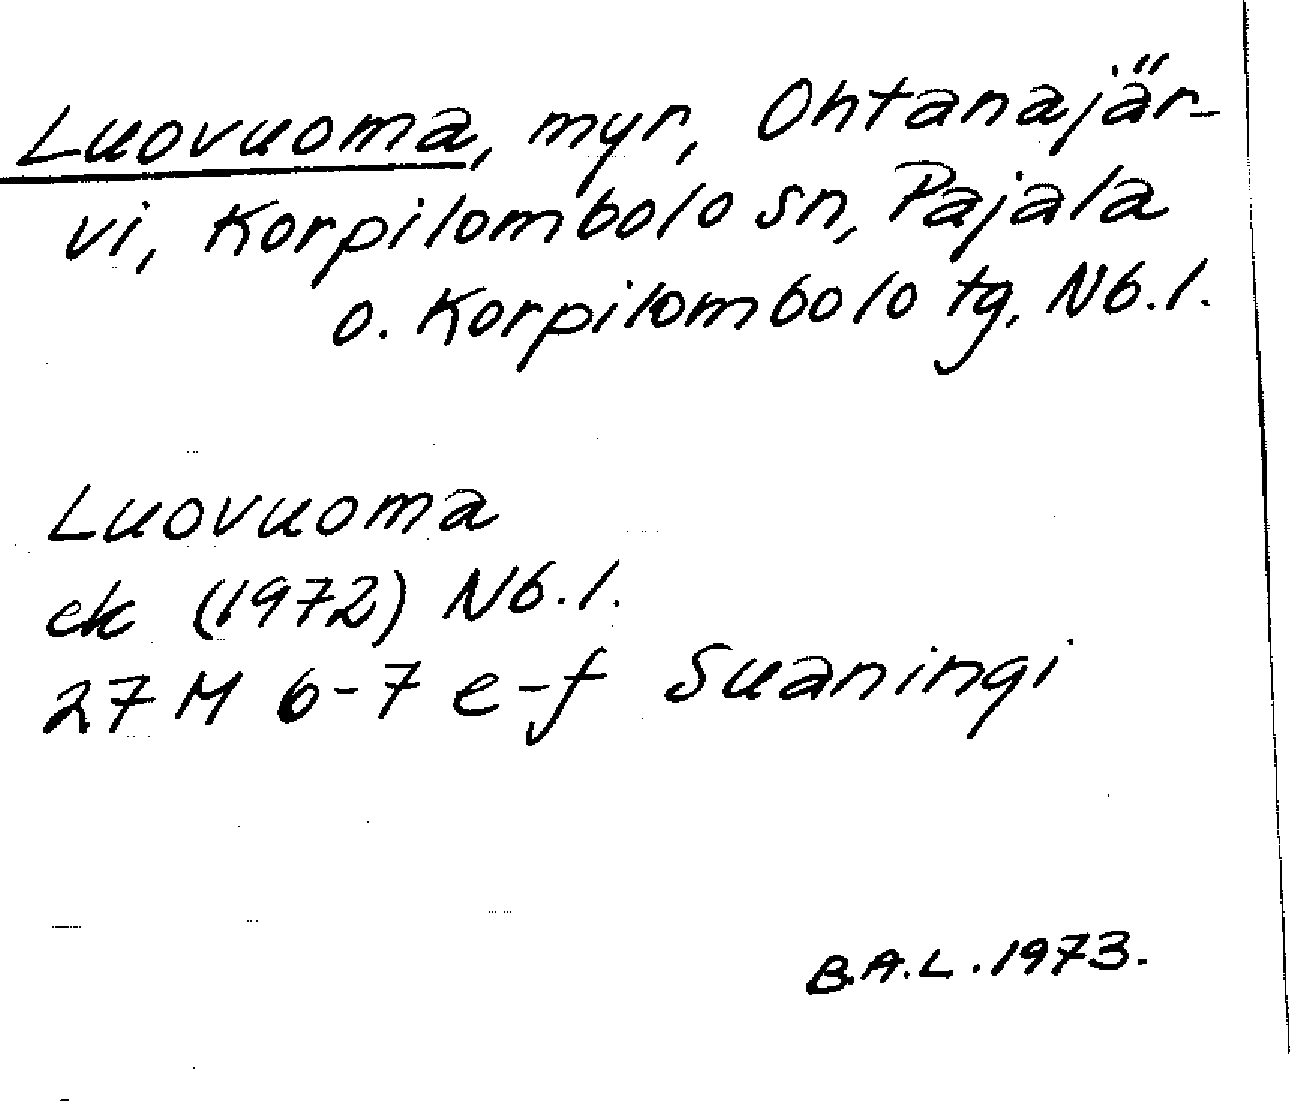 Luovuoma, myr, Ohtanajär-
vi, Korpilombolo sn, Pajala
o. Korpilombolo tg, Nb.l.
Luovuoma
ek (1972) Nb.l.
27 M 6-7 e-f Suaningi
B.A.L. 1973.